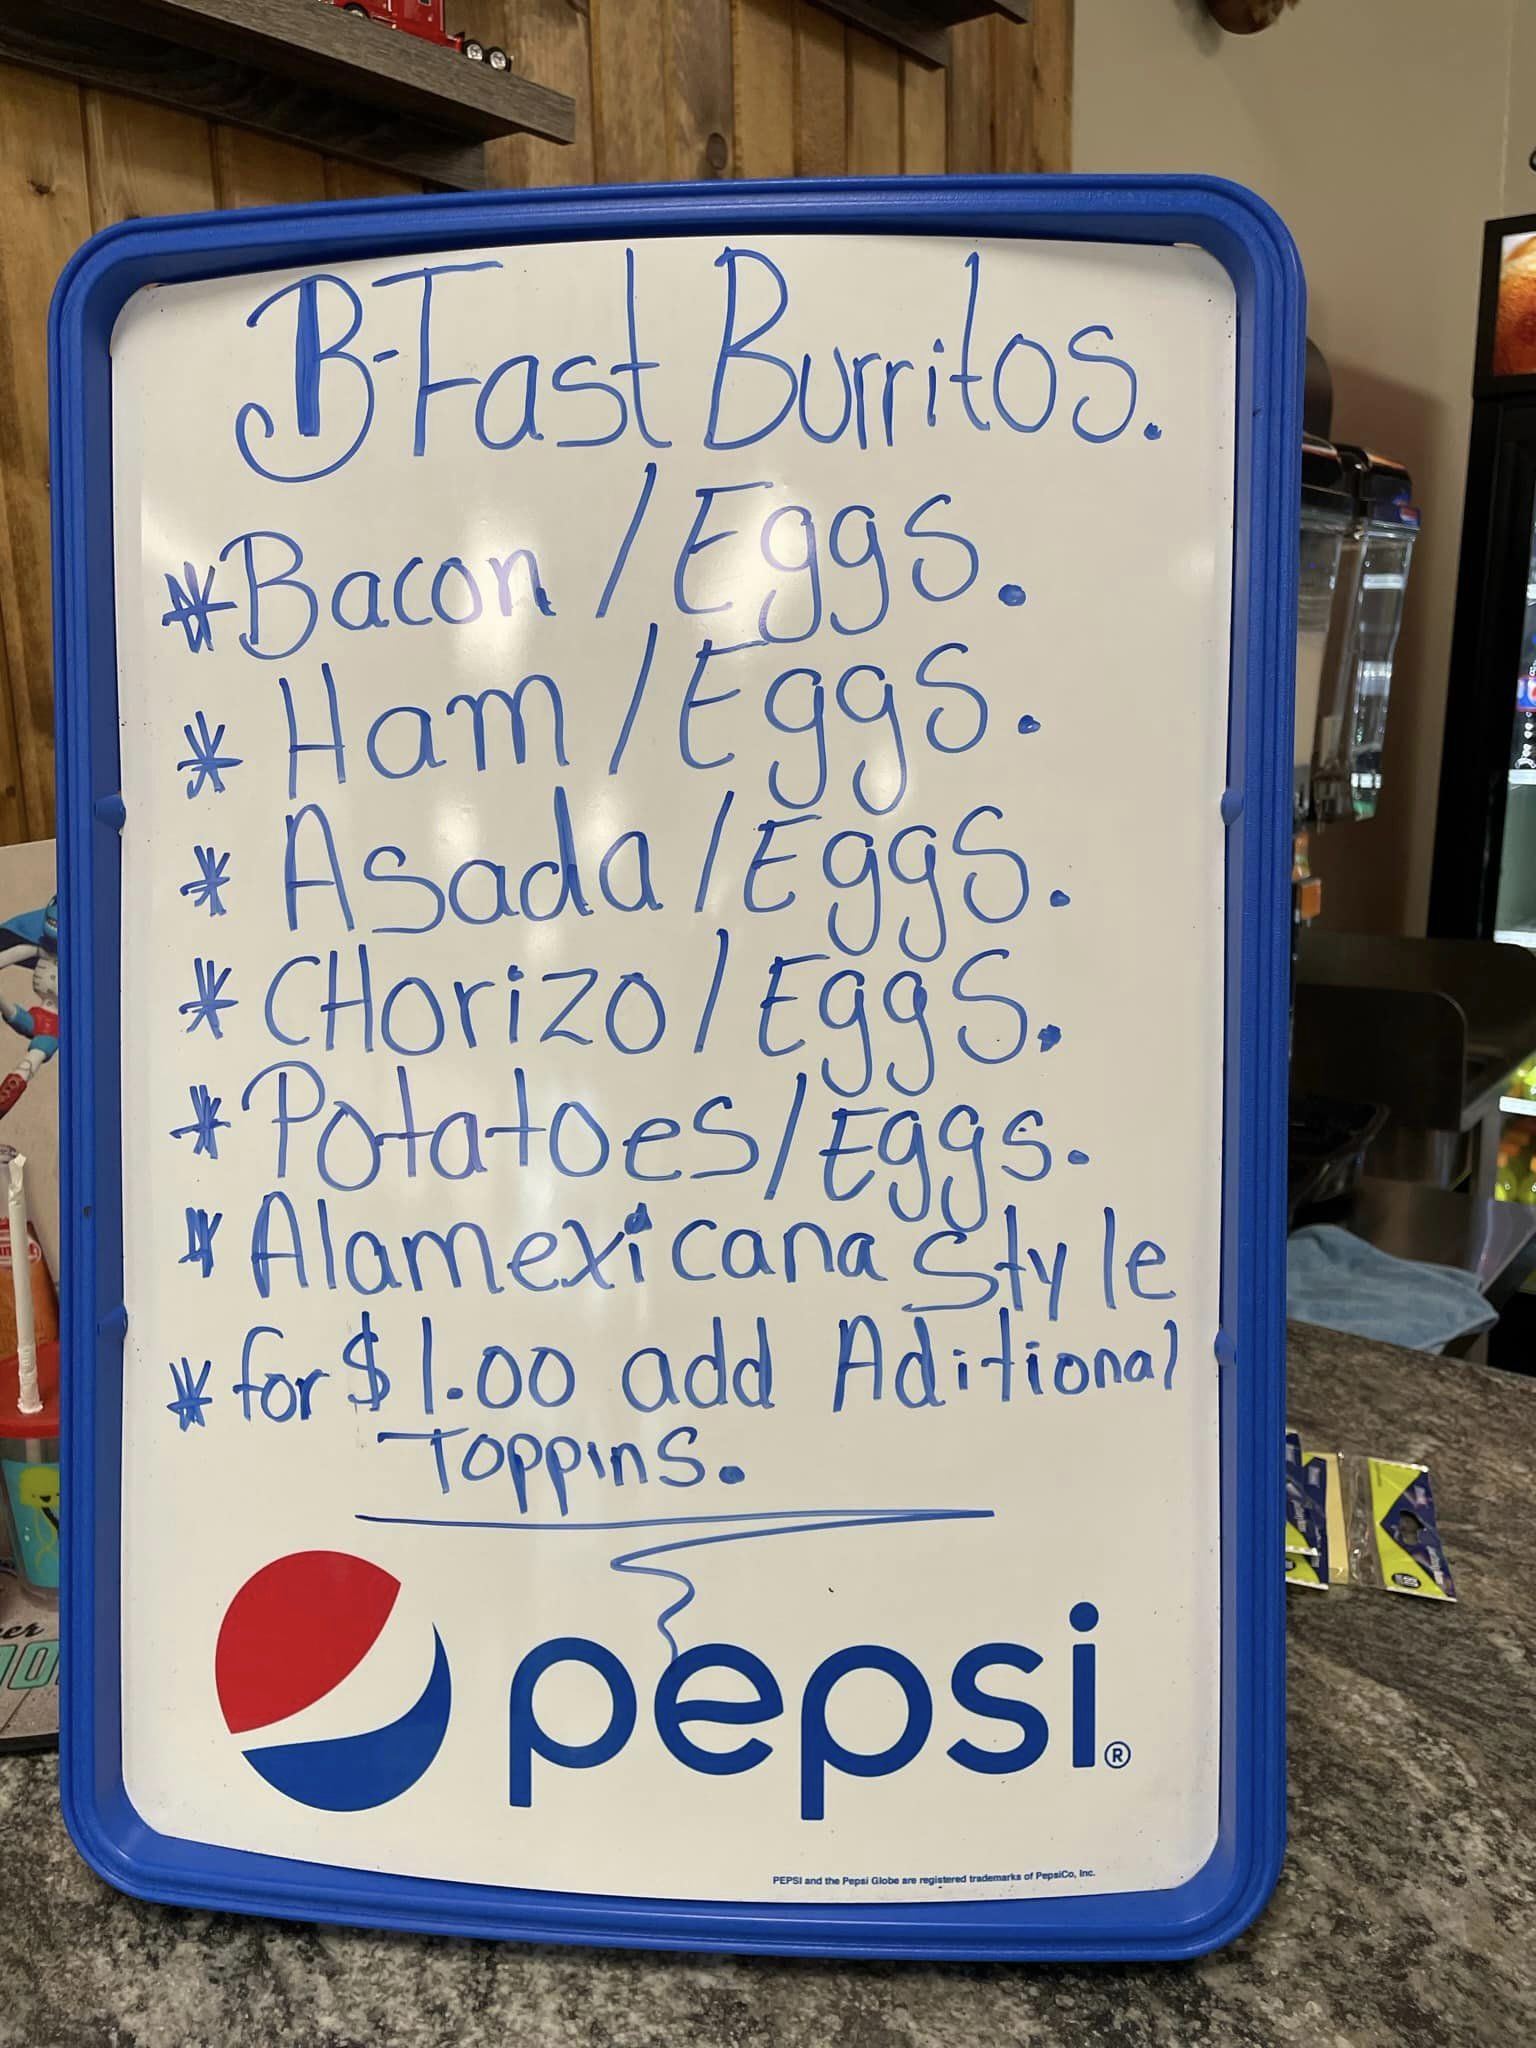 B-Fast Burritos.
*Bacon/Eggs.
* Ham/Eggs.
* Asada/Eggs.
* CHorizo/Eggs.
* Potatoes/Eggs.
* Alamexicana Style
* for $1.00 add Aditional
Toppins.
pepsi®
PEPSI and the Pepsi Globe are registered trademarks of PepsiCo, Inc.